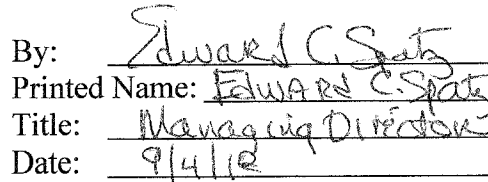 By: Edward C. Spatz
Printed Name: Edward C. Spatz
Title: Managing Director
Date: 9/4/12